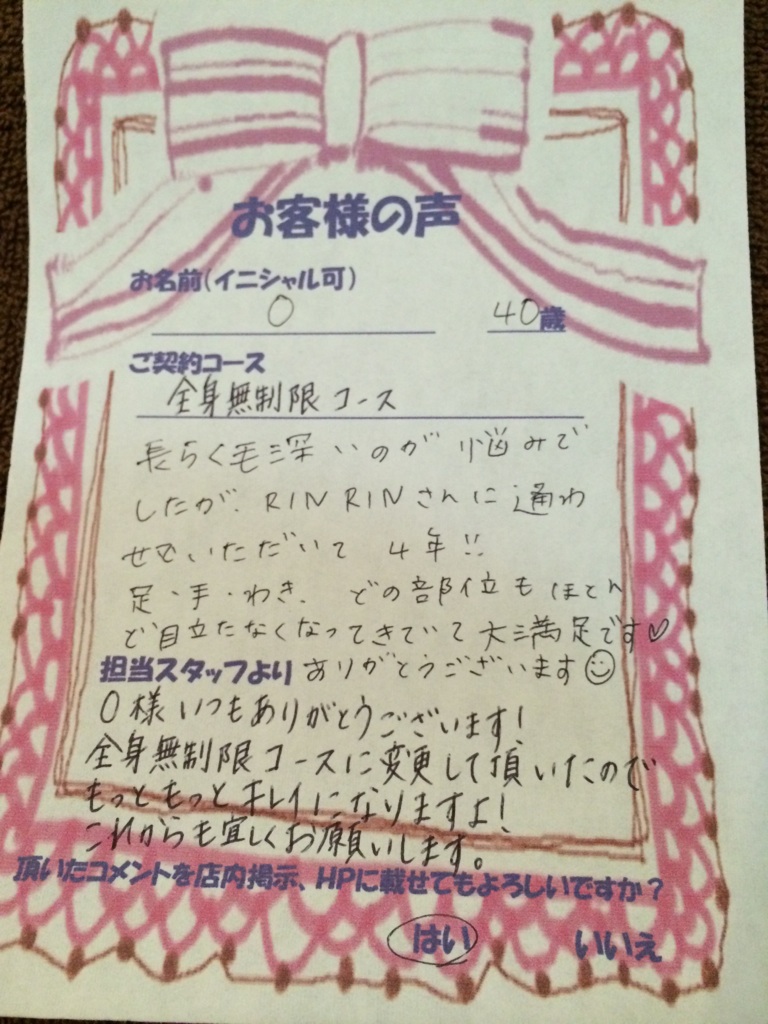 お客様の声
お名前(イニシャル可)
O 40歳
ご契約コース
全身無制限コース
長らく毛深いのが悩みで
したが、RINRINさんに通わ
せていただいて 4年!!
足・手・わき、どの部位もほとん
ど目立たなくなってきていて大満足です♡
担当スタッフより ありがとうございます☺
O様いつもありがとうございます!
全身無制限コースに変更して頂いたので
もっともっとキレイになりますよ!
これからも宜しくお願いします。
頂いたコメントを店内掲示、HPに載せてもよろしいですか?
はい いいえ